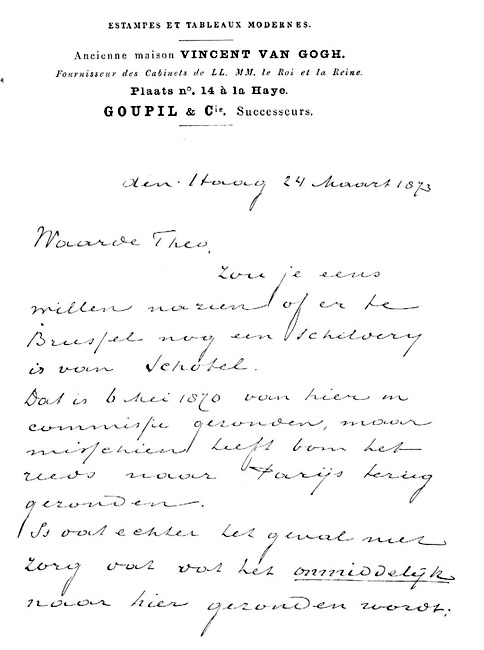 ESTAMPES ET TABLEAUX MODERNES.
Ancienne maison VINCENT VAN GOGH.
Fournisseur des Cabinets de LL. MM. le Roi et la Reine.
Plaats nº. 14 à la Haye.
GOUPIL & Cie. Successeurs.
den Haag 24 Maart 1873
Waarde Theo,
Zou je eens
willen nazien of er te
Brussel nog een schildery
is van Schotel.
Dat is 6 Mei 1870 van hier in
commissie gezonden, maar
misschien heeft bom het
reeds naar Parijs terug
gezonden.
Is dat echter het geval niet
zorg dat dat het onmiddelijk
naar hier gezonden wordt.